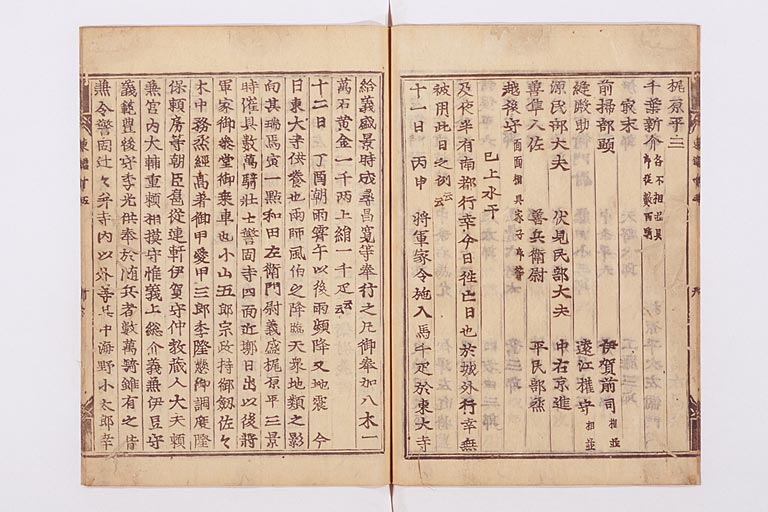 梶原平三
千葉新介 各不相具郎従数百騎
前掃部頭 伊賀前司 相並
縫殿助 遠江權守 相並
源民部大夫 伏見民部大夫 中右京進
尊華人佐 善兵衛尉 平民部烝
越後守 面面相具家子郎等
已上水干
及夜半有南都行幸今日徃亡日也於城外行幸無
被用此日之例云云
十一日 丙申 將軍家令施入馬千疋於東大寺
給義盛景時成尋昌寛等奉行之凡御奉加八木一
萬石黄金一千兩上絹一千疋云云
十二日 丁酉朝雨霽午以後雨頻降又地震 今
日東大寺供養也雨師風伯之降臨天衆地類之影
向其瑞馬寅一點和田左衛門尉義盛梶原平三景
時催具數萬騎壯士警固寺四面近墎日出以後將
軍家御參堂御乗車也小山五郎宗政持御劒佐々
木中務烝經高着御甲愛甲三郎季隆懸御調度隆
保頼房等朝臣扈從連軒伊賀守仲教藏人大夫頼
兼宮内大輔重頼相摸守惟義上総介義兼伊豆守
義範豊後守季光供奉於随兵者數萬騎雖有之皆
兼令警固辻々幷寺内以外等其中海野小太郎幸